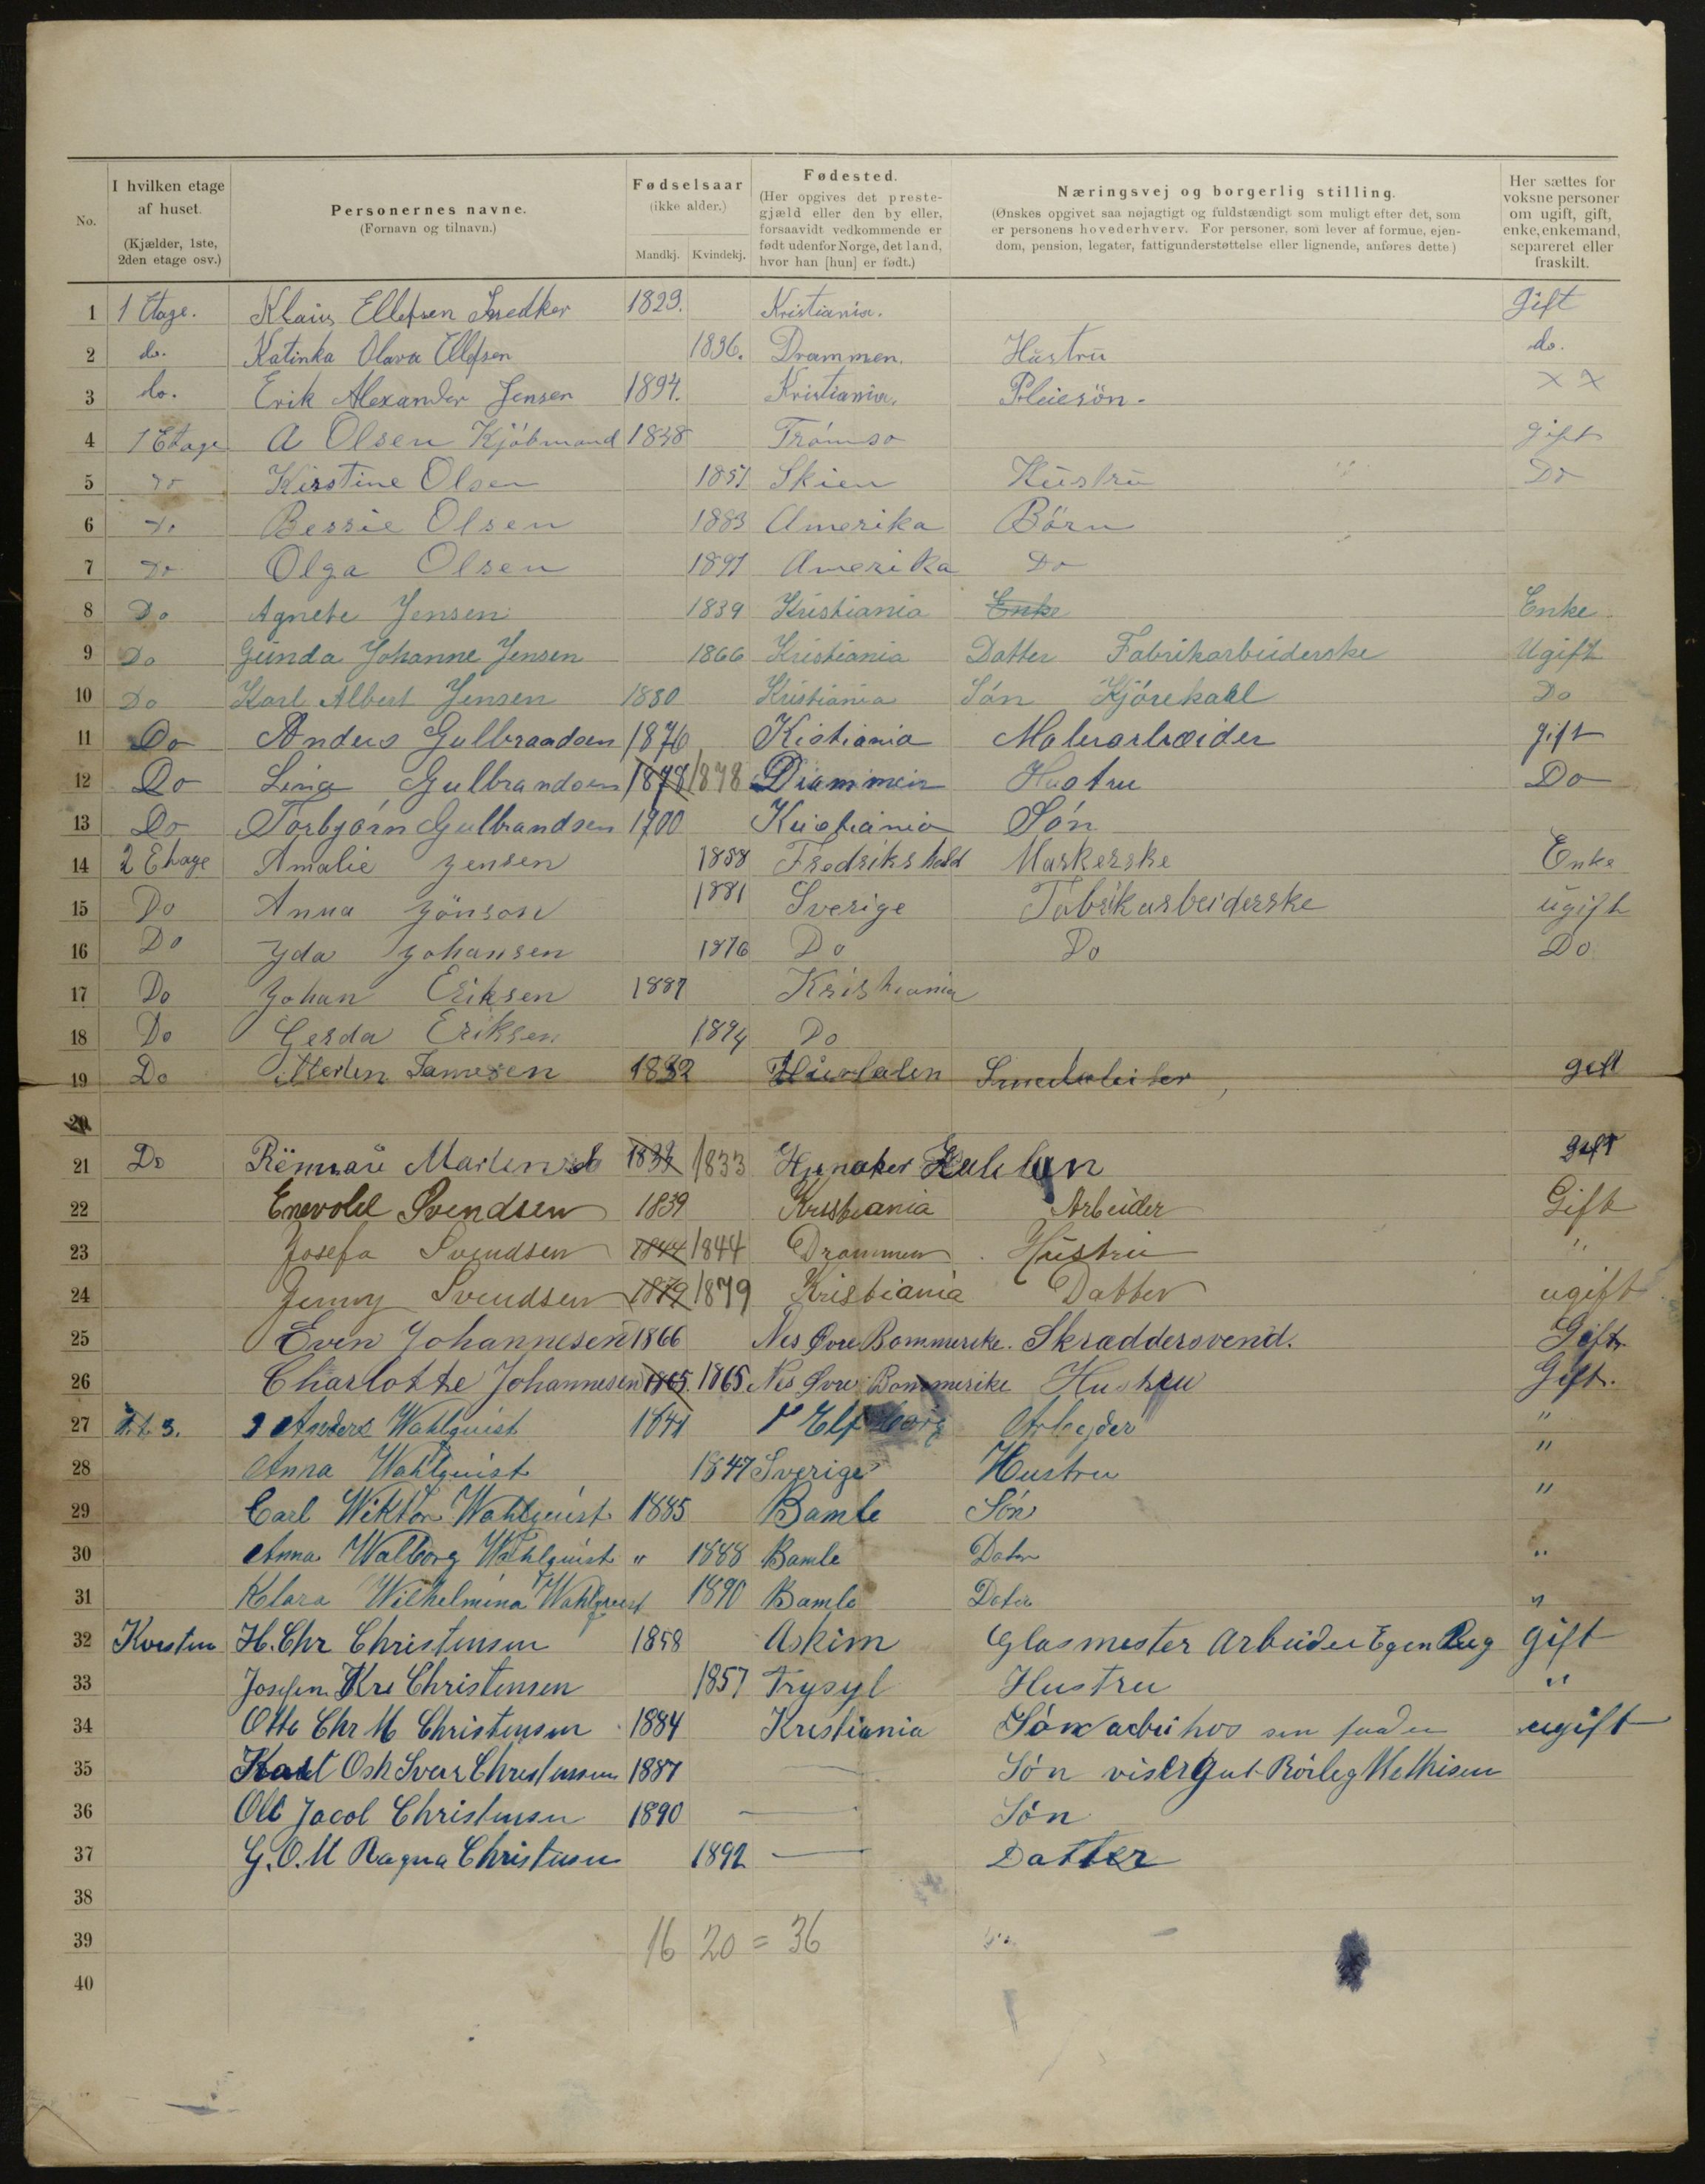 No.
I hvilken etage af huset. (Kjælder, 1ste, 2den etage osv.)
Personernes navne. (Fornavn og tilnavn.)
Fødselsaar (ikke alder.) Mandkj. Kvindekj.
Fødested. (Her opgives det prestegjæld eller den by eller, forsaavidt vedkommende er født udenfor Norge, det land, hvor han [hun] er født.)
Næringsvej og borgerlig stilling. (Ønskes opgivet saa nøjagtigt og fuldstændigt som muligt efter det, som er personens hovederhverv. For personer, som lever af formue, ejendom, pension, legater, fattigunderstøttelse eller lignende, anføres dette.)
Her sættes for voksne personer om ugift, gift, enke, enkemand, separeret eller fraskilt.
1 1 Etage. Klaus Ellefsen Snedker 1829. Kristiania. gift
2 do. Katinka Olava Ellefsen 1836. Drammen. Hustru do.
3 do. Erik Alexander Jensen 1894. Kristiania. Pleiesön.
4 1 Etage A Olsen Kjöbmand 1848 Trömsø gift
5 Do Kirstine Olsen 1851 Skien Hustru Do
6 Do Bessie Olsen 1883 Amerika Börn
7 Do Olga Olsen 1891 Amerika Do
8 Do Agnete Jensen 1839 Kristiania Enke Enke
9 Do Gunda Johanne Jensen 1866 Kristiania Datter Fabrikarbeiderske Ugift
10 Do Karl Albert Jensen 1880 Kristiania Sön Kjörekarl Do
11 Do Anders Gulbrandsen 1876 Kistiania Malerarbeider gift
12 Do Lina Gulbrandsen 1878 1878 Drammen Hustru Do
13 Do Torbjörn Gulbrandsen 1900 Kristiania Sön
14 2 Etage Amalie Jensen 1858 Fredrikshald Maskerske Enke
15 Do Anna Jönson 1881 Sverige Fabrikarbeiderske ugift
16 Do Yda Johansen 1876 Do Do Do
17 Do Johan Eriksen 1887 Kristiania
18 Do Gerda Eriksen 1894 Do
19 Do 1832 gift
20
21 Do 1833 gift
22 Enevold Svendsen 1839 Kristiania Arbeider Gift
23 Josefa Svendsen 1844 1844 Drammen Hustru "
24 Jenny Svendsen 1879 1879 Kristiania Datter ugift
25 Even Johannesen 1866 Nes Øvre Rommerike. Skræddersvend. Gift.
26 Charlotte Johannesen 1865. 1865 Nes Øvre Rommerike Hustru Gift.
27 Anders Wahlquist 1841 Arbejder "
28 Anna Wahlquist 1847 Sverige Hustru "
29 Carl Wiktor Wahlquist 1885 Bamle Sön "
30 Anna Walborg Wahlquist " 1888 Bamle Dater "
31 Klara Wilhelmina Wahlquist 1890 Bamle Dater "
32 Kvisten H. Chr Christensen 1858 Askim Glasmester Arbeider Egen Reg gift
33 Josefin Kre Christensen 1857 Trysyl Hustru "
34 Otto Chr M Christensen 1884 Kristiania Sön arbei hos sin fader ugift
35 Karl Osk Sverr Christensen 1887 — Sön visergut
36 Ole Jacob Christensen 1890 — Sön
37 G. O. M Ragna Christensen 1892 — Datter
38
39 16 20 = 36
40